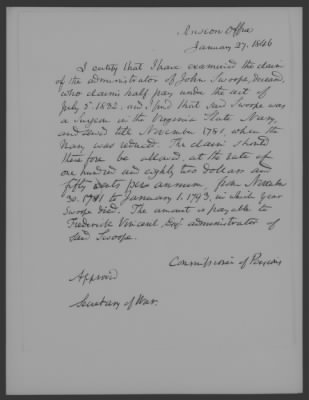 Pension Office
January 27. 1846
I certify that I have examined the claim
of the administrator of John Swoope, deceased,
who claims half pay under the act of
July 5. 1832. and find that said Swoope was
a Surgeon in the Virginia State Navy,
and served till November 1781, when the
Navy was reduced. The claim should
therefore be allowed, at the rate of
one hundred and eighty two dollars and
fifty cents per annum, from November
30. 1781 to January 1. 1793, in which year
Swoope died. The amount is payable to
Frederick Vincent Esqr administrator of
said Swoope.
Commissioner of Pensions
Approved
Secretary of War.